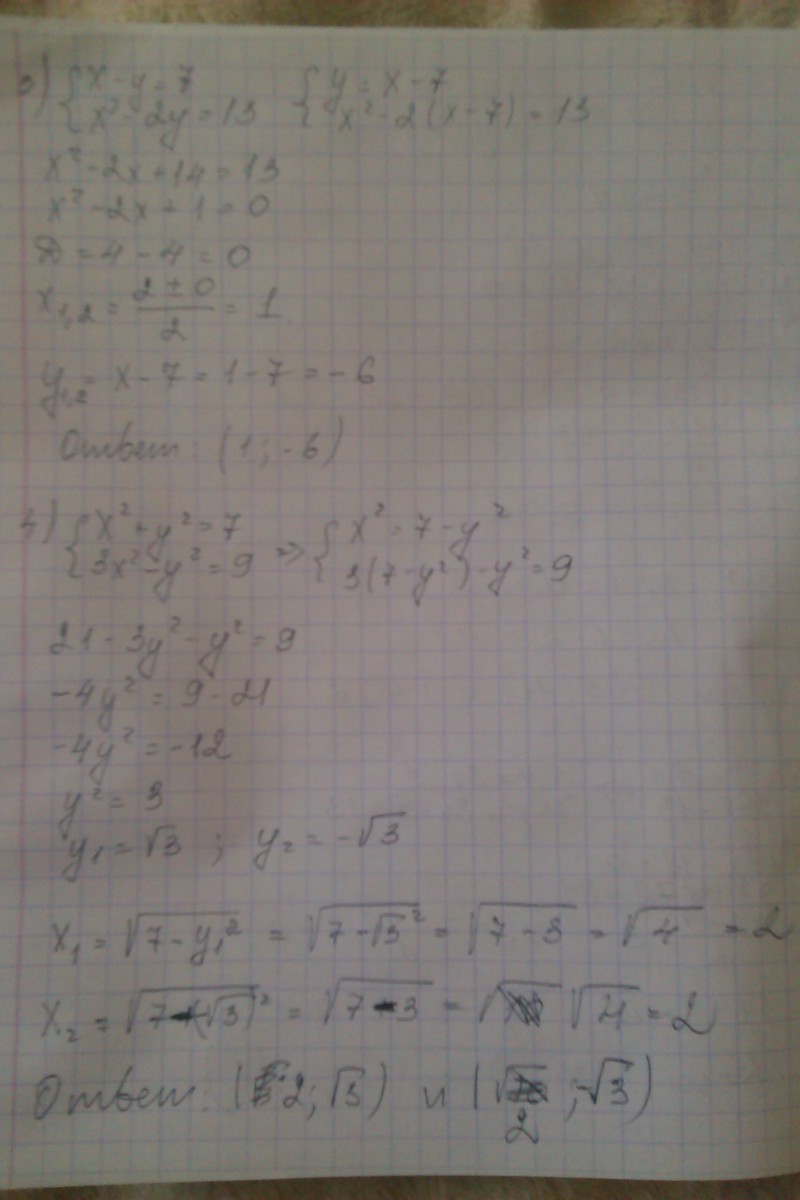 { x - y = 7   { y = x - 7
{ x² - 2y = 13   { x² - 2(x - 7) = 13
x² - 2x + 14 = 13
x² - 2x + 1 = 0
D = 4 - 4 = 0
x₁,₂ = (2 ± 0)/2 = 1
y₁,₂ = x - 7 = 1 - 7 = -6
Ответ: (1; -6)
4) { x² + y² = 7   => { x² = 7 - y²
{ 3x² - y² = 9   { 3(7 - y²) - y² = 9
21 - 3y² - y² = 9
-4y² = 9 - 21
-4y² = -12
y² = 3
y₁ = √3 ; y₂ = -√3
x₁ = √(7 - y₁²) = √(7 - √3²) = √(7 - 3) = √4 = 2
x₂ = √(7 - (√3)²) = √(7 - 3) = √4 = 2
Ответ: (2; √3) и (2; -√3)